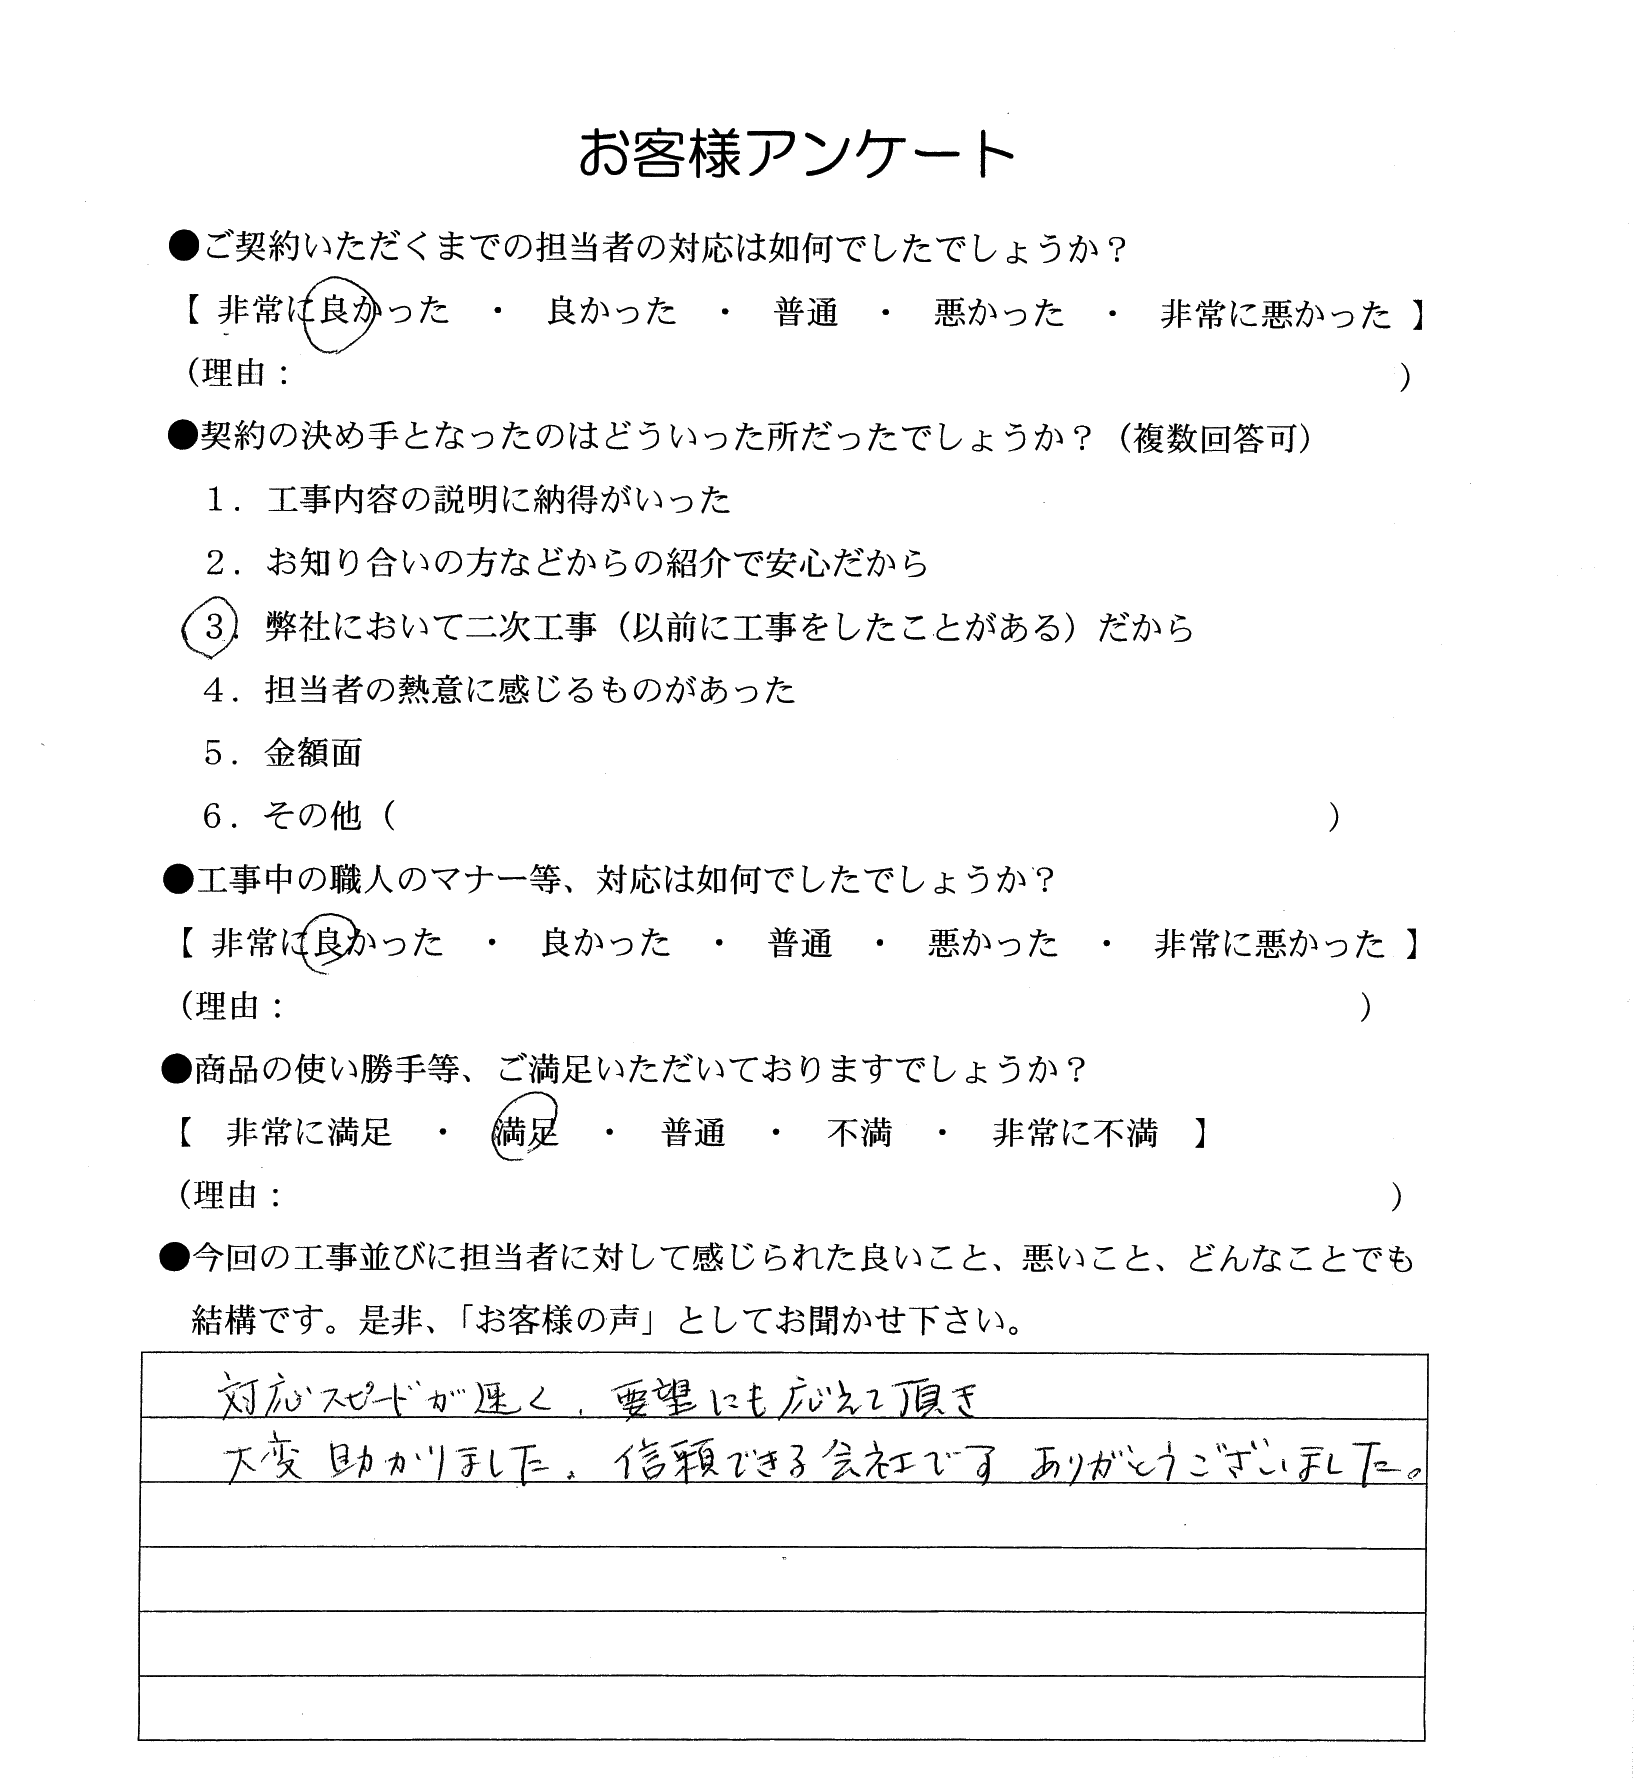 お客様アンケート
●ご契約いただくまでの担当者の対応は如何でしたでしょうか？
【 非常に良かった ・ 良かった ・ 普通 ・ 悪かった ・ 非常に悪かった 】
（理由： ）
●契約の決め手となったのはどういった所だったでしょうか？（複数回答可）
１．工事内容の説明に納得がいった
２．お知り合いの方などからの紹介で安心だから
３．弊社において二次工事（以前に工事をしたことがある）だから
４．担当者の熱意に感じるものがあった
５．金額面
６．その他（ ）
●工事中の職人のマナー等、対応は如何でしたでしょうか？
【 非常に良かった ・ 良かった ・ 普通 ・ 悪かった ・ 非常に悪かった 】
（理由： ）
●商品の使い勝手等、ご満足いただいておりますでしょうか？
【 非常に満足 ・ 満足 ・ 普通 ・ 不満 ・ 非常に不満 】
（理由： ）
●今回の工事並びに担当者に対して感じられた良いこと、悪いこと、どんなことでも
結構です。是非、「お客様の声」としてお聞かせ下さい。
対応スピードが速く、要望にも応えて頂き
大変助かりました。信頼できる会社です ありがとうございました。